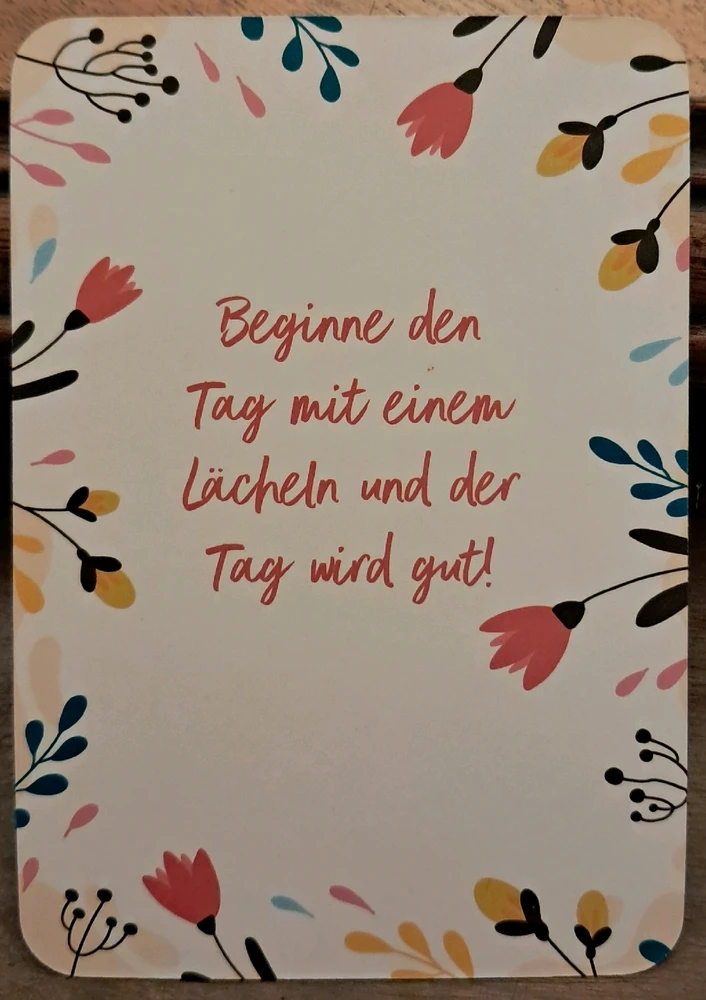 Beginne den
Tag mit einem
Lächeln und der
Tag wird gut!